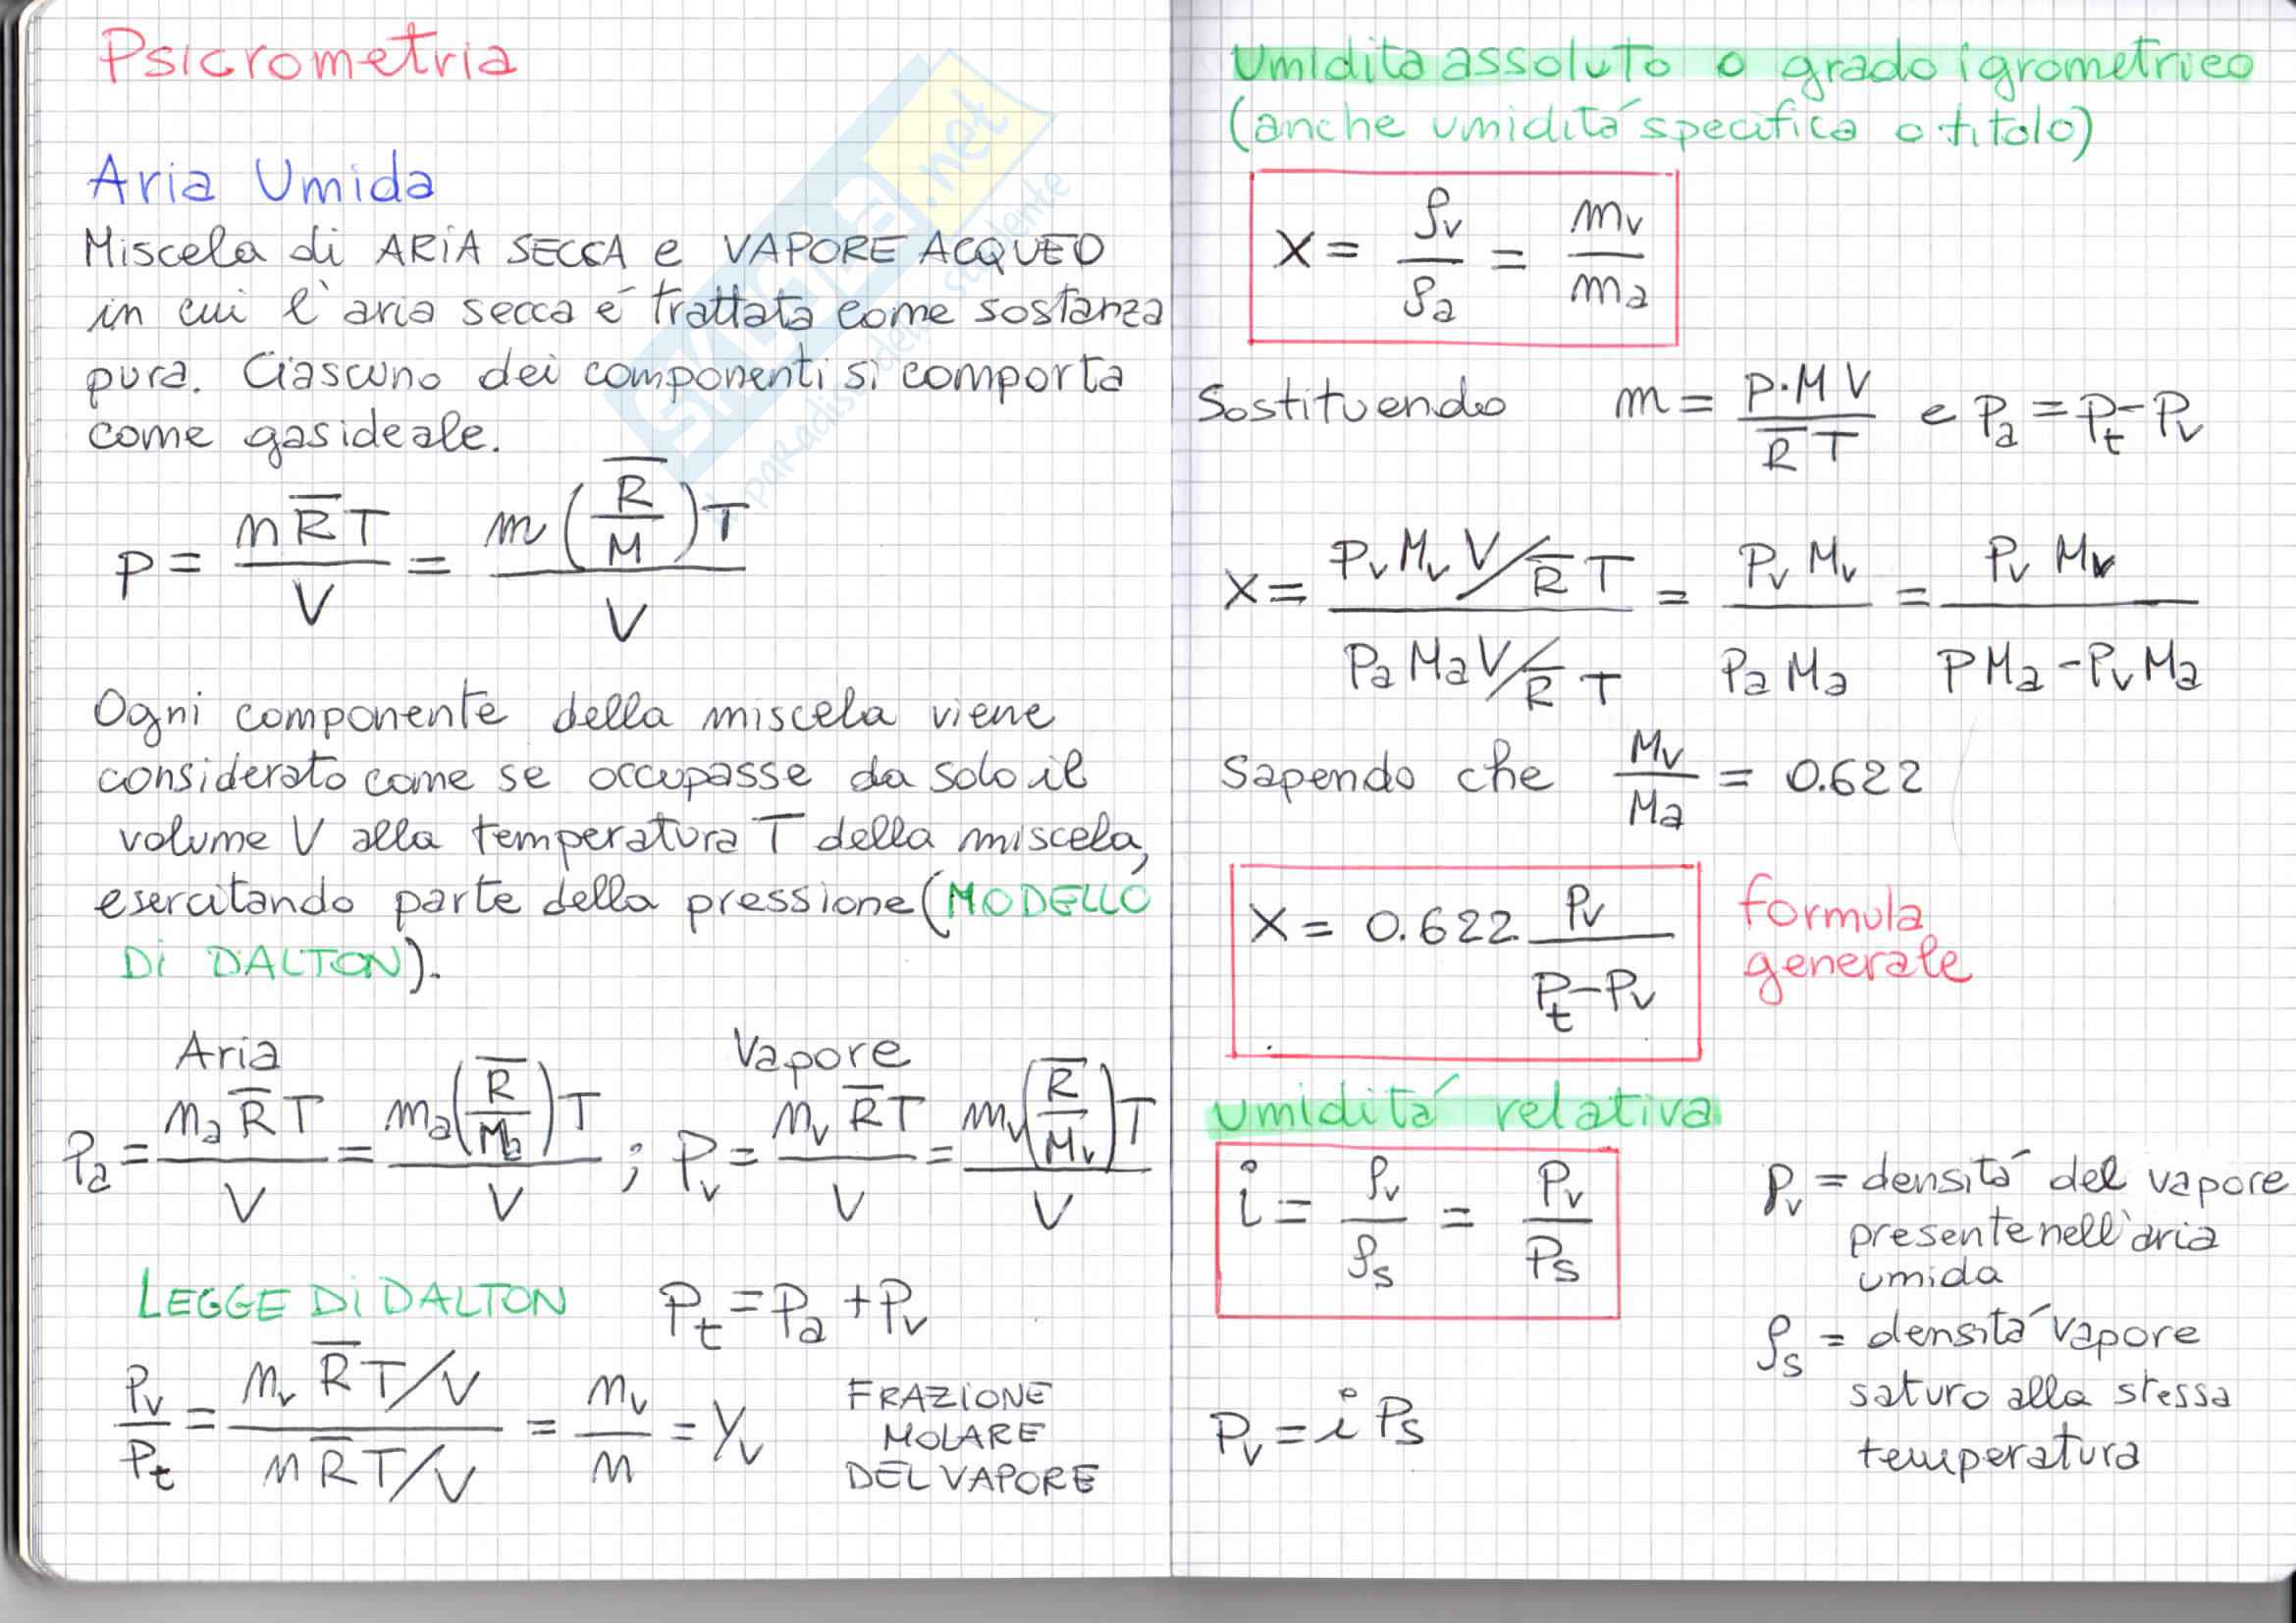 Psicrometria
Aria Umida
Miscela di ARIA SECCA e VAPORE ACQUEO
in cui l'aria secca é trattata come sostanza
pura. Ciascuno dei componenti si comporta
come gas ideale.
p = n R̅ T / V = m (R̅/M) T / V
Ogni componente della miscela viene
considerato come se occupasse da solo il
volume V alla temperatura T della miscela,
esercitando parte della pressione (MODELLO
Di DALTON).
Aria Vapore
Pa = na R̅ T / V = ma (R̅/Ma) T / V ; Pv = nv R̅ T / V = mv (R̅/Mv) T / V
LEGGE Di DALTON Pt = Pa + Pv
Pv/Pt = (nv R̅ T/V) / (n R̅ T/V) = nv/n = yv FRAZIONE
MOLARE
DEL VAPORE
Umidita assoluto o grado igrometrico
(anche umiditá specifica o titolo)
X = ρv/ρa = mv/ma
Sostituendo m = p·M V / R̅ T e Pa = Pt - Pv
X = (Pv Mv V/R̅ T) / (Pa Ma V/R̅ T) = Pv Mv / Pa Ma = Pv Mv / (P Ma - Pv Ma)
Sapendo che Mv/Ma = 0.622
X = 0.622 Pv / (Pt - Pv) formula
generale
Umiditá relativa
i = ρv/ρs = Pv/Ps
ρv = densitá del vapore
presente nell'aria
umida
ρs = densitá vapore
saturo alla stessa
temperatura
Pv = i Ps
SKUOLA.net
il paradiso dello studente